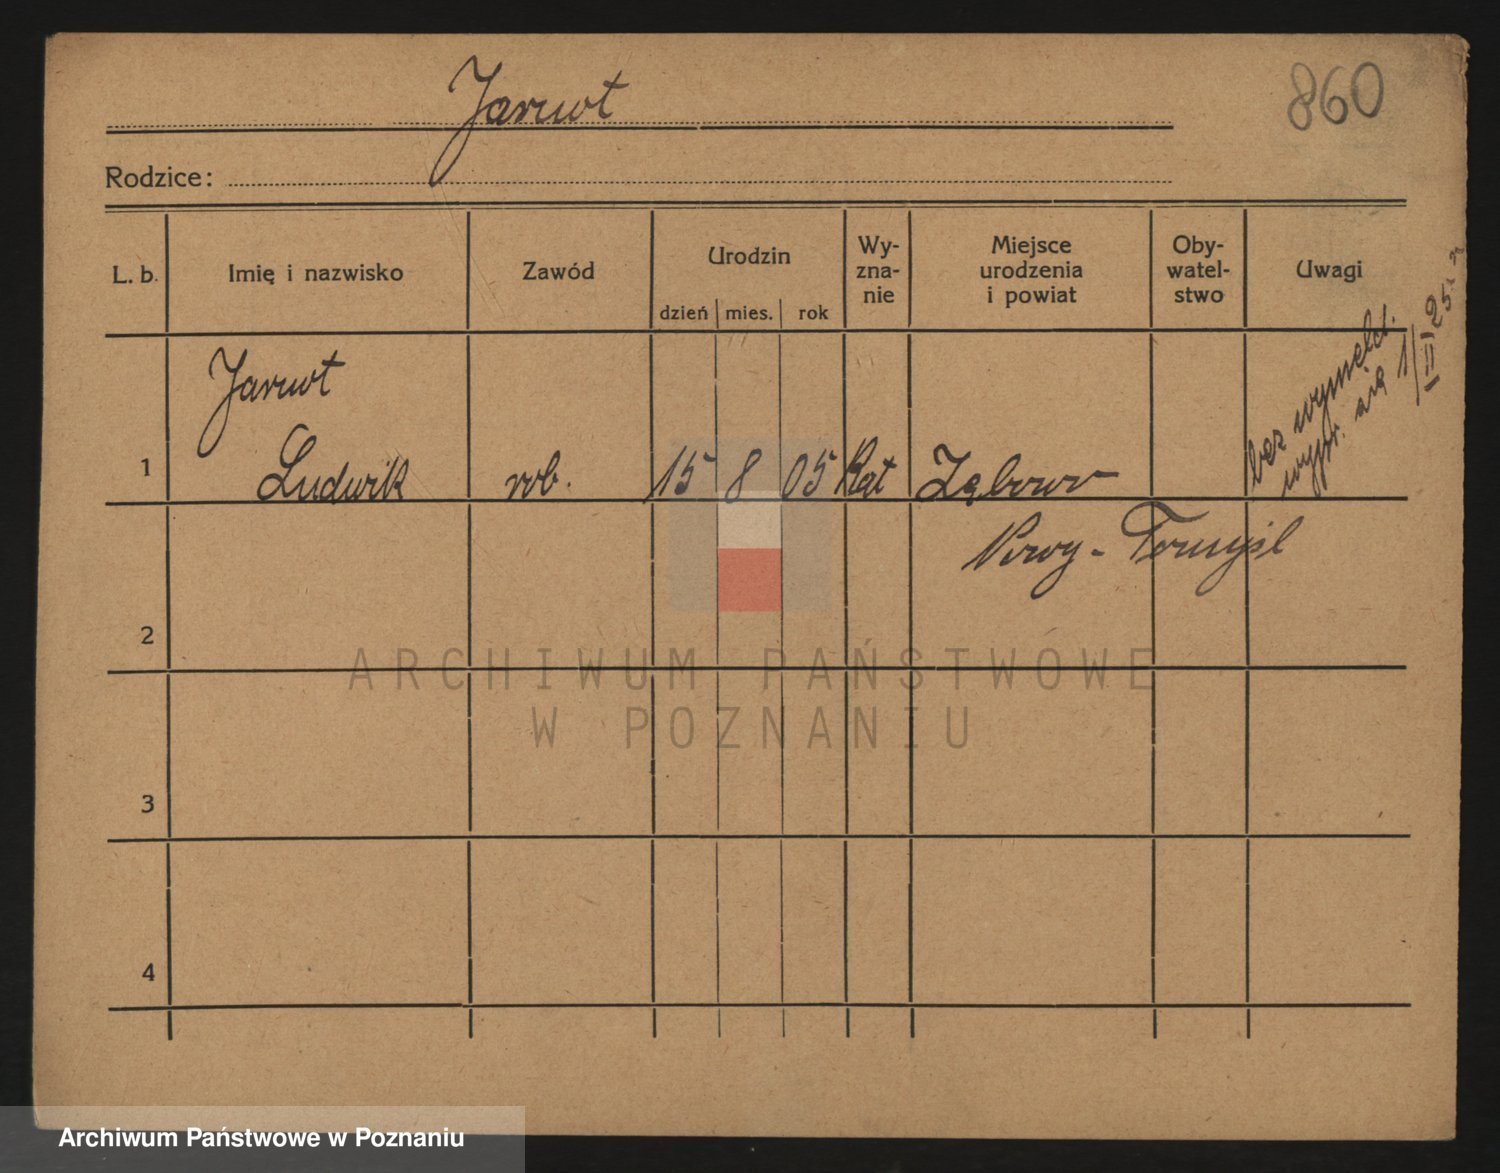 Jarwot
860
Rodzice:
L. b.
Imię i nazwisko
Zawód
Urodzin
dzień mies. rok
Wy-
zna-
nie
Miejsce
urodzenia
i powiat
Oby-
watel-
stwo
Uwagi
Jarwot
1 Ludwik rob. 15 8 05 Kat
Nowy-Tomyśl
bez wymeld.
wypr. się 1/II 25. r
2
3
4
ARCHIWUM PAŃSTWOWE
W POZNANIU
Archiwum Państwowe w Poznaniu